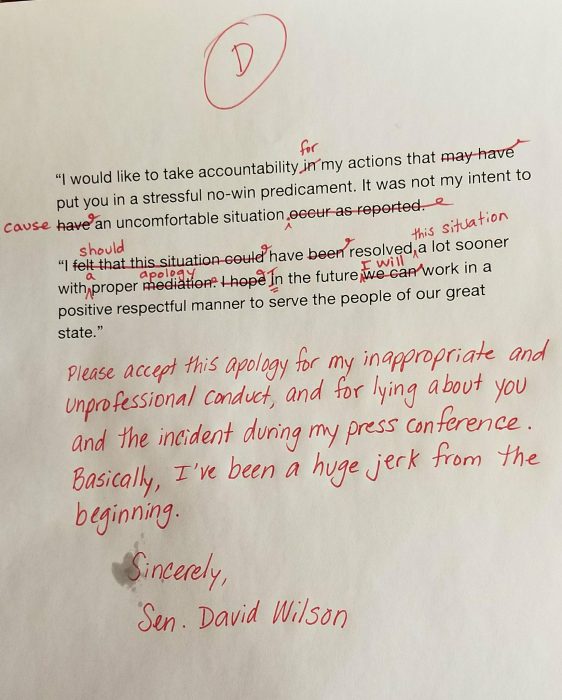 D
for
"I would like to take accountability in my actions that may have
put you in a stressful no-win predicament. It was not my intent to
cause have an uncomfortable situation occur as reported.
should this situation
"I felt that this situation could have been resolved a lot sooner
a apology I will
with proper mediation. I hope In the future we can work in a
positive respectful manner to serve the people of our great
state."
Please accept this apology for my inappropriate and
unprofessional conduct, and for lying about you
and the incident during my press conference.
Basically, I've been a huge jerk from the
beginning.
Sincerely,
Sen. David Wilson